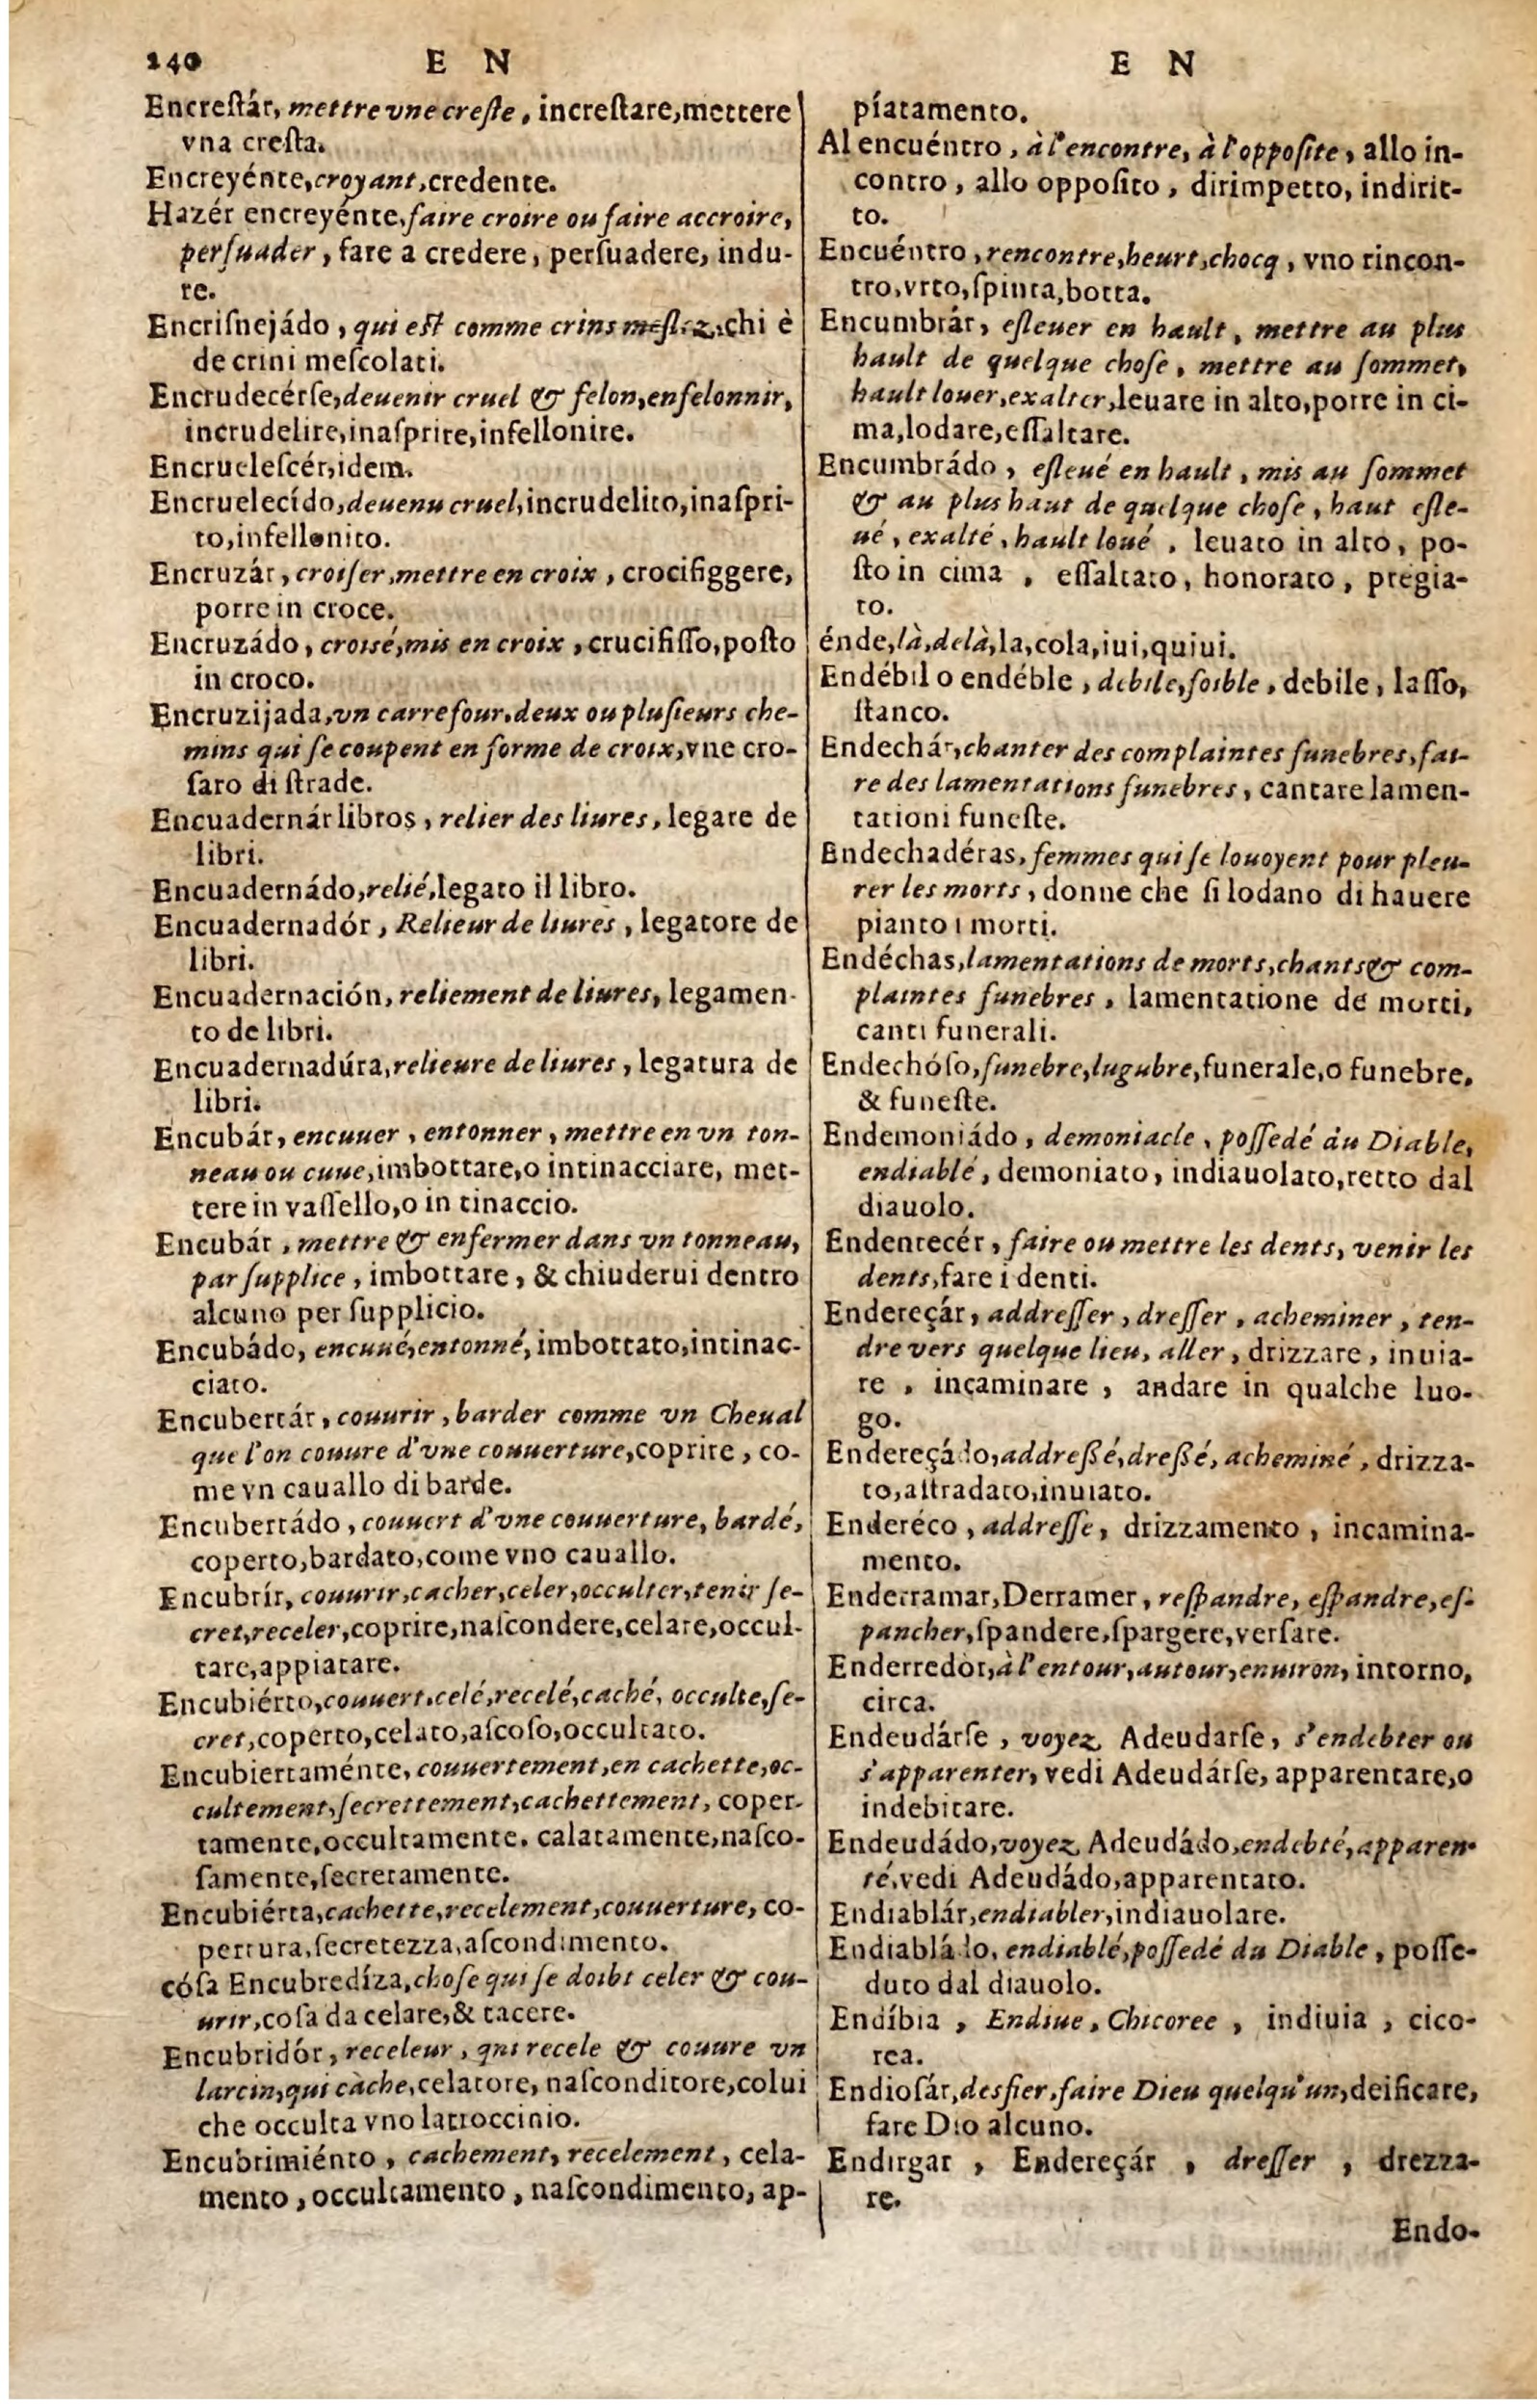 240 E N
E N
Encreſtár, mettre vne creſte, increſtare, mettere
vna creſta.
Encreyénte, croyant, credente.
Hazér encreyénte, faire croire ou faire accroire,
perſuader, fare a credere, perſuadere, indu-
re.
Encriſnejádo, qui eſt comme crins meſlez, chi è
de crini meſcolati.
Encrudecérſe, deuenir cruel & felon, enfelonnir,
incrudelire, inaſprire, infellonire.
Encrueleſcér, idem.
Encruelecído, deuenu cruel, incrudelito, inaſpri-
to, infellonito.
Encruzár, croiſer, mettre en croix, crocifiggere,
porre in croce.
Encruzádo, croisé, mis en croix, crucifiſſo, poſto
in croco.
Encruzijada, vn carrefour, deux ou pluſieurs che-
mins qui ſe coupent en forme de croix, vne cro-
ſaro di ſtrade.
Encuadernár libros, relier des liures, legare de
libri.
Encuadernádo, relié, legato il libro.
Encuadernadór, Relieur de liures, legatore de
libri.
Encuadernación, reliement de liures, legamen-
to de libri.
Encuadernadúra, relieure de liures, legatura de
libri.
Encubár, encuuer, entonner, mettre en vn ton-
neau ou cuue, imbottare, o intinacciare, met-
tere in vaſſello, o in tinaccio.
Encubár, mettre & enfermer dans vn tonneau,
par ſupplice, imbottare, & chiuderui dentro
alcuno per ſupplicio.
Encubádo, encuué, entonné, imbottato, intinac-
ciato.
Encubertár, couurir, barder comme vn Cheual
que l'on couure d'vne couuerture, coprire, co-
me vn cauallo di barde.
Encubertádo, couuert d'vne couuerture, bardé,
coperto, bardato, come vno cauallo.
Encubrír, couurir, cacher, celer, occulter, tenir ſe-
cret, receler, coprire, naſcondere, celare, occul-
tare, appiatare.
Encubiérto, couuert, celé, recelé, caché, occulte, ſe-
cret, coperto, celato, aſcoſo, occultato.
Encubiertaménte, couuertement, en cachette, oc-
cultement, ſecrettement, cachettement, coper-
tamente, occultamente. calatamente, naſco-
ſamente, ſecretamente.
Encubiérta, cachette, recelement, couuerture, co-
pertura, ſecretezza, aſcondimento.
cóſa Encubredíza, choſe qui ſe doibt celer & cou-
urir, coſa da celare, & tacere.
Encubridór, receleur, qui recele & couure vn
larcin, qui cache, celatore, naſconditore, colui
che occulta vno latroccinio.
Encubrimiénto, cachement, recelement, cela-
mento, occultamento, naſcondimento, ap-
píatamento.
Al encuéntro, à l'encontre, à l'oppoſite, allo in-
contro, allo oppoſito, dirimpetto, indirit-
to.
Encuéntro, rencontre, heurt, chocq, vno rincon-
tro, vrto, ſpinta, botta.
Encumbrár, eſleuer en hault, mettre au plus
hault de quelque choſe, mettre au ſommet,
hault louer, exalter, leuare in alto, porre in ci-
ma, lodare, eſſaltare.
Encumbrádo, eſleué en hault, mis au ſommet
& au plus haut de quelque choſe, haut eſle-
ué, exalté, hault loué, leuato in alto, po-
ſto in cima, eſſaltato, honorato, pregia-
to.
énde, là, delà, la, cola, iui, quiui.
Endébil o endéble, debile, foible, debile, laſſo,
ſtanco.
Endechár, chanter des complaintes funebres, fai-
re des lamentations funebres, cantare lamen-
tationi funeſte.
Endechadéras, femmes qui ſe louoyent pour pleu-
rer les morts, donne che ſi lodano di hauere
pianto i morti.
Endéchas, lamentations de morts, chants & com-
plaintes funebres, lamentatione de morti,
canti funerali.
Endechóſo, funebre, lugubre, funerale, o funebre,
& funeſte.
Endemoniádo, demoniacle, poſſedé du Diable,
endiablé, demoniato, indiauolato, retto dal
diauolo.
Endentecér, faire ou mettre les dents, venir les
dents, fare i denti.
Endereçár, addreſſer, dreſſer, acheminer, ten-
dre vers quelque lieu, aller, drizzare, inuia-
re, incaminare, andare in qualche luo-
go.
Endereçádo, addreßé, dreßé, acheminé, drizza-
to, aſtradato, inuiato.
Enderéco, addreſſe, drizzamento, incamina-
mento.
Enderramar, Derramer, reſpandre, eſpandre, eſ-
pancher, ſpandere, ſpargere, verſare.
Enderredòr, à l'entour, autour, enuiron, intorno,
circa.
Endeudárſe, voyez Adeudarſe, s'endebter ou
s'apparenter, vedi Adeudárſe, apparentare, o
indebitare.
Endeudádo, voyez Adeudádo, endebté, apparen-
té, vedi Adeudádo, apparentato.
Endiablár, endiabler, indiauolare.
Endiabládo, endiablé, poſſedé du Diable, poſſe-
duto dal diauolo.
Endíbia, Endiue, Chicoree, indiuia, cico-
rea.
Endioſár, desfier, faire Dieu quelqu'un, deificare,
fare Dio alcuno.
Endirgar, Endereçár, dreſſer, drezza-
re.
Endo-